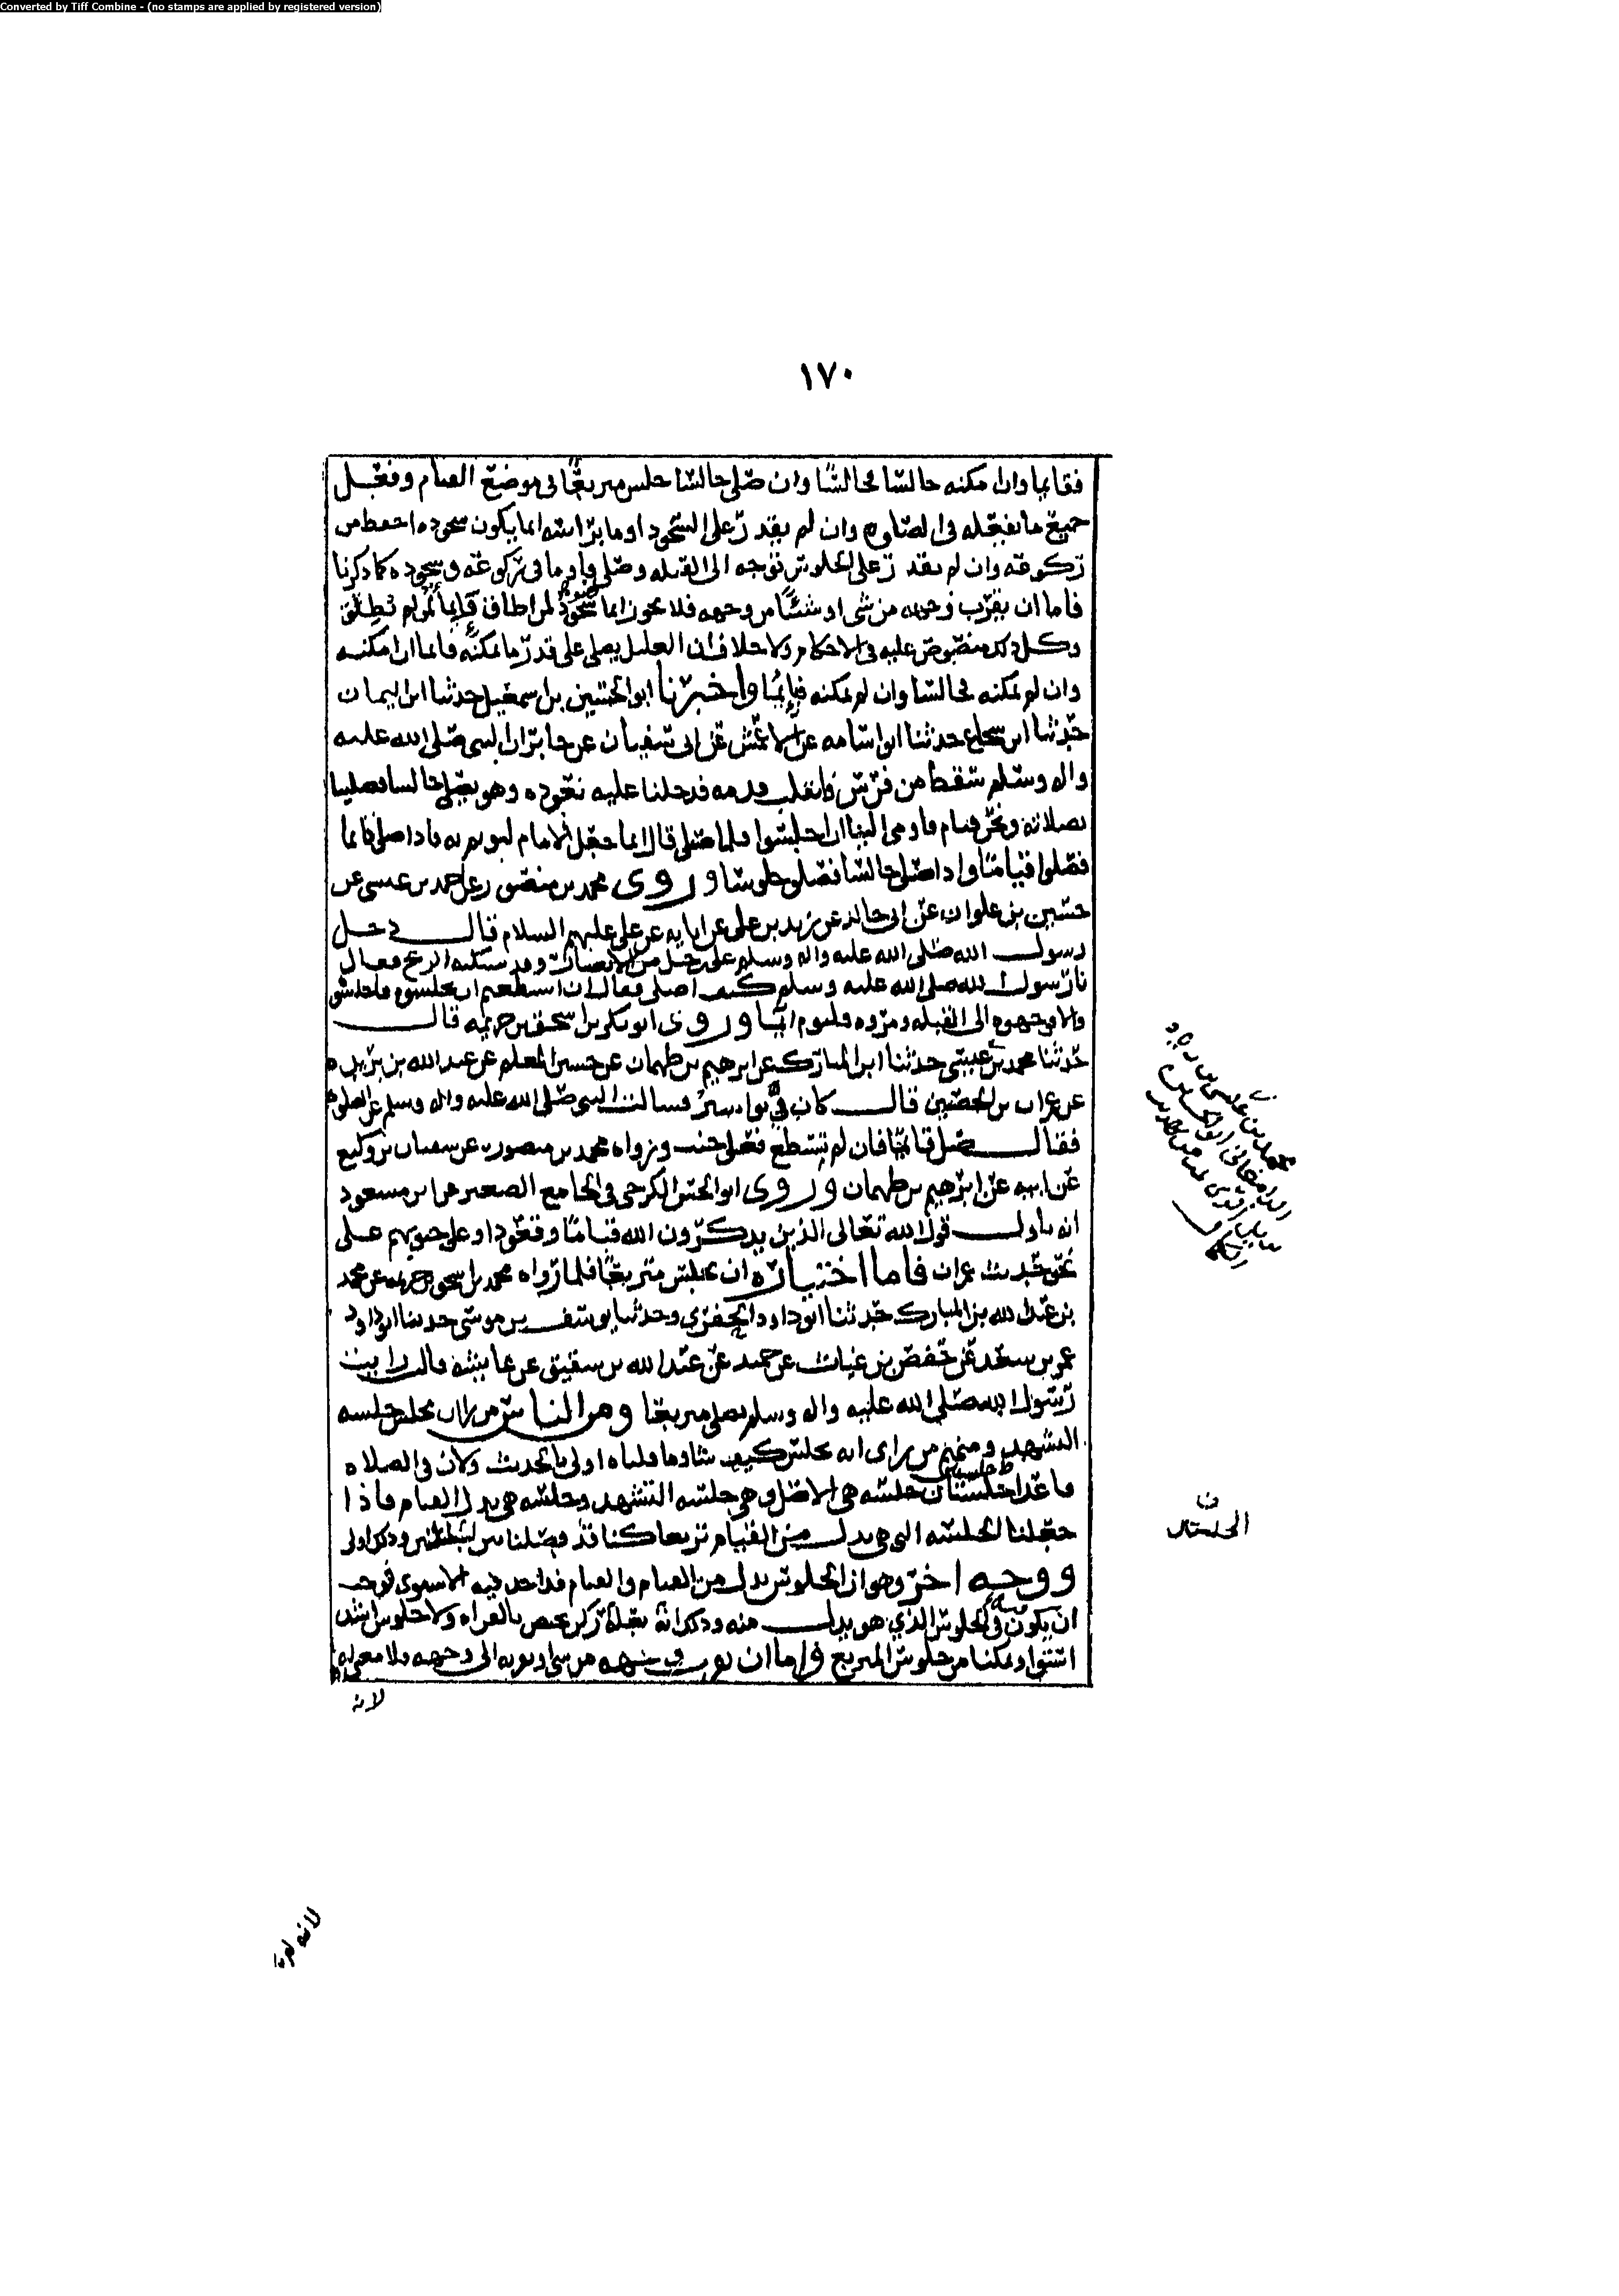 Converted by Tiff Combine - (no stamps are applied by registered version)
١٧٠
فقائما وان امكنه جالسا فجالسا وان صلى جالسا جلس متربعا في موضع القيام وفعل
جميع ما يفعله في الصلوه وان لم يقدر على السجود اوما براسه ايما يكون سجوده اخفط من
ركوعه وان لم يقدر على الجلوس توجه الى القبله وصلى واوما في ركوعه وسجوده كما ذكرنا
فاما ان يقرب وجهه من شي او شيئا من وجهه فلا يجوز
وكل ذلك منصوص عليه في الاحكام ولا خلاف ان العليل يصلي على قدر ما يمكنه قائما ان امكنه
وان لم يمكنه فجالسا وان لم يمكنه واخبرنا ابو الحسين بن اسمعيل حدثنا ابن اليمان
حدثنا ابن شجاع حدثنا ابو اسامه عن الاعمش عن ابي سفيان عن جابر ان النبي صلى الله عليه
واله وسلم سقط من فرس فانفلت قدمه فدخلنا عليه نعوده وهو يصلي جالسا فصلينا
بصلاته ونحن قيام فاومى الينا ان اجلسوا فلما صلى قال انما جعل الامام ليوتم به فاذا صلى قائما
فصلوا قياما واذا صلى جالسا فصلوا جلوسا وروى محمد بن منصور عن احمد بن عيسى عن
حسين بن علوان عن ابي خالد عن زيد بن علي عن ابايه عن علي عليهم السلام قال دخل
رسول الله صلى الله عليه واله وسلم على رجل من الانصار وقد شبكته الريح فقال
يا رسول الله صلى الله عليه وسلم كيف اصلي فقال ان استطعتم ان تجلسوه فاجلسوه
والا وجهوه الى القبله ومروه فليوم ايما وروى ابو بكر بن اسحق بن خزيمه قال
حدثنا محمد بن عيسى حدثنا ابن المبارك عن ابرهيم بن طهمان عن حسين المعلم عن عبد الله بن بريده
عن عمران بن الحصين قال كان بي بواسير فسالت النبي صلى الله عليه واله وسلم عن الصلوه
فقال صل قائما فان لم تستطع فعلى جنب ورواه محمد بن منصور عن سفيان بن وكيع
عن ابيه عن ابرهيم بن طهمان وروى ابو الحسن الكرخي في الجامع الصغير عن ابن مسعود
انه تاول قول الله تعالى الذين يذكرون الله قياما وقعودا وعلى جنوبهم على
نحو حديث عمران فاما اختياره ان يجلس متربعا فلما رواه محمد بن اسحق بن خزيمه عن محمد
بن عبد الله بن المبارك حدثنا ابو داود الحفري وحدثنا يوسف بن موسى حدثنا ابو داود
عمر بن سعد عن حفص بن غياث عن حميد عن عبد الله بن شقيق عن عايشه قالت رايت
رسول الله صلى الله عليه واله وسلم يصلي متربعا ومن الناس من راى ان يجلس جلسه
التشهد ومنهم من راى انه يجلس كيف شا وما قلناه اولى بالحديث ولان في الصلاه
ما عدا جلستان جلسه هي الاصل وهي جلسه التشهد وجلسه هي بدل القيام فاذا
جعلنا الجلسه التي هي بدل من القيام تربعا كنا قد فصلنا بين الجلستين وذلك اولى
ووجه اخر وهو ان الجلوس بدل من القيام والقيام قد اخذ فيه الاستوى فوجب
ان يكون في الجلوس الذي هو بدل منه وذلك انه بعد ركن يختص بالقراه ولا جلوس اشد
استوا وتمكنا من جلوس المتربع واما ان وجهه من شي الى وجهه فلا معنى له
لانه
محمد بن عيسى
الجلستان
لانه